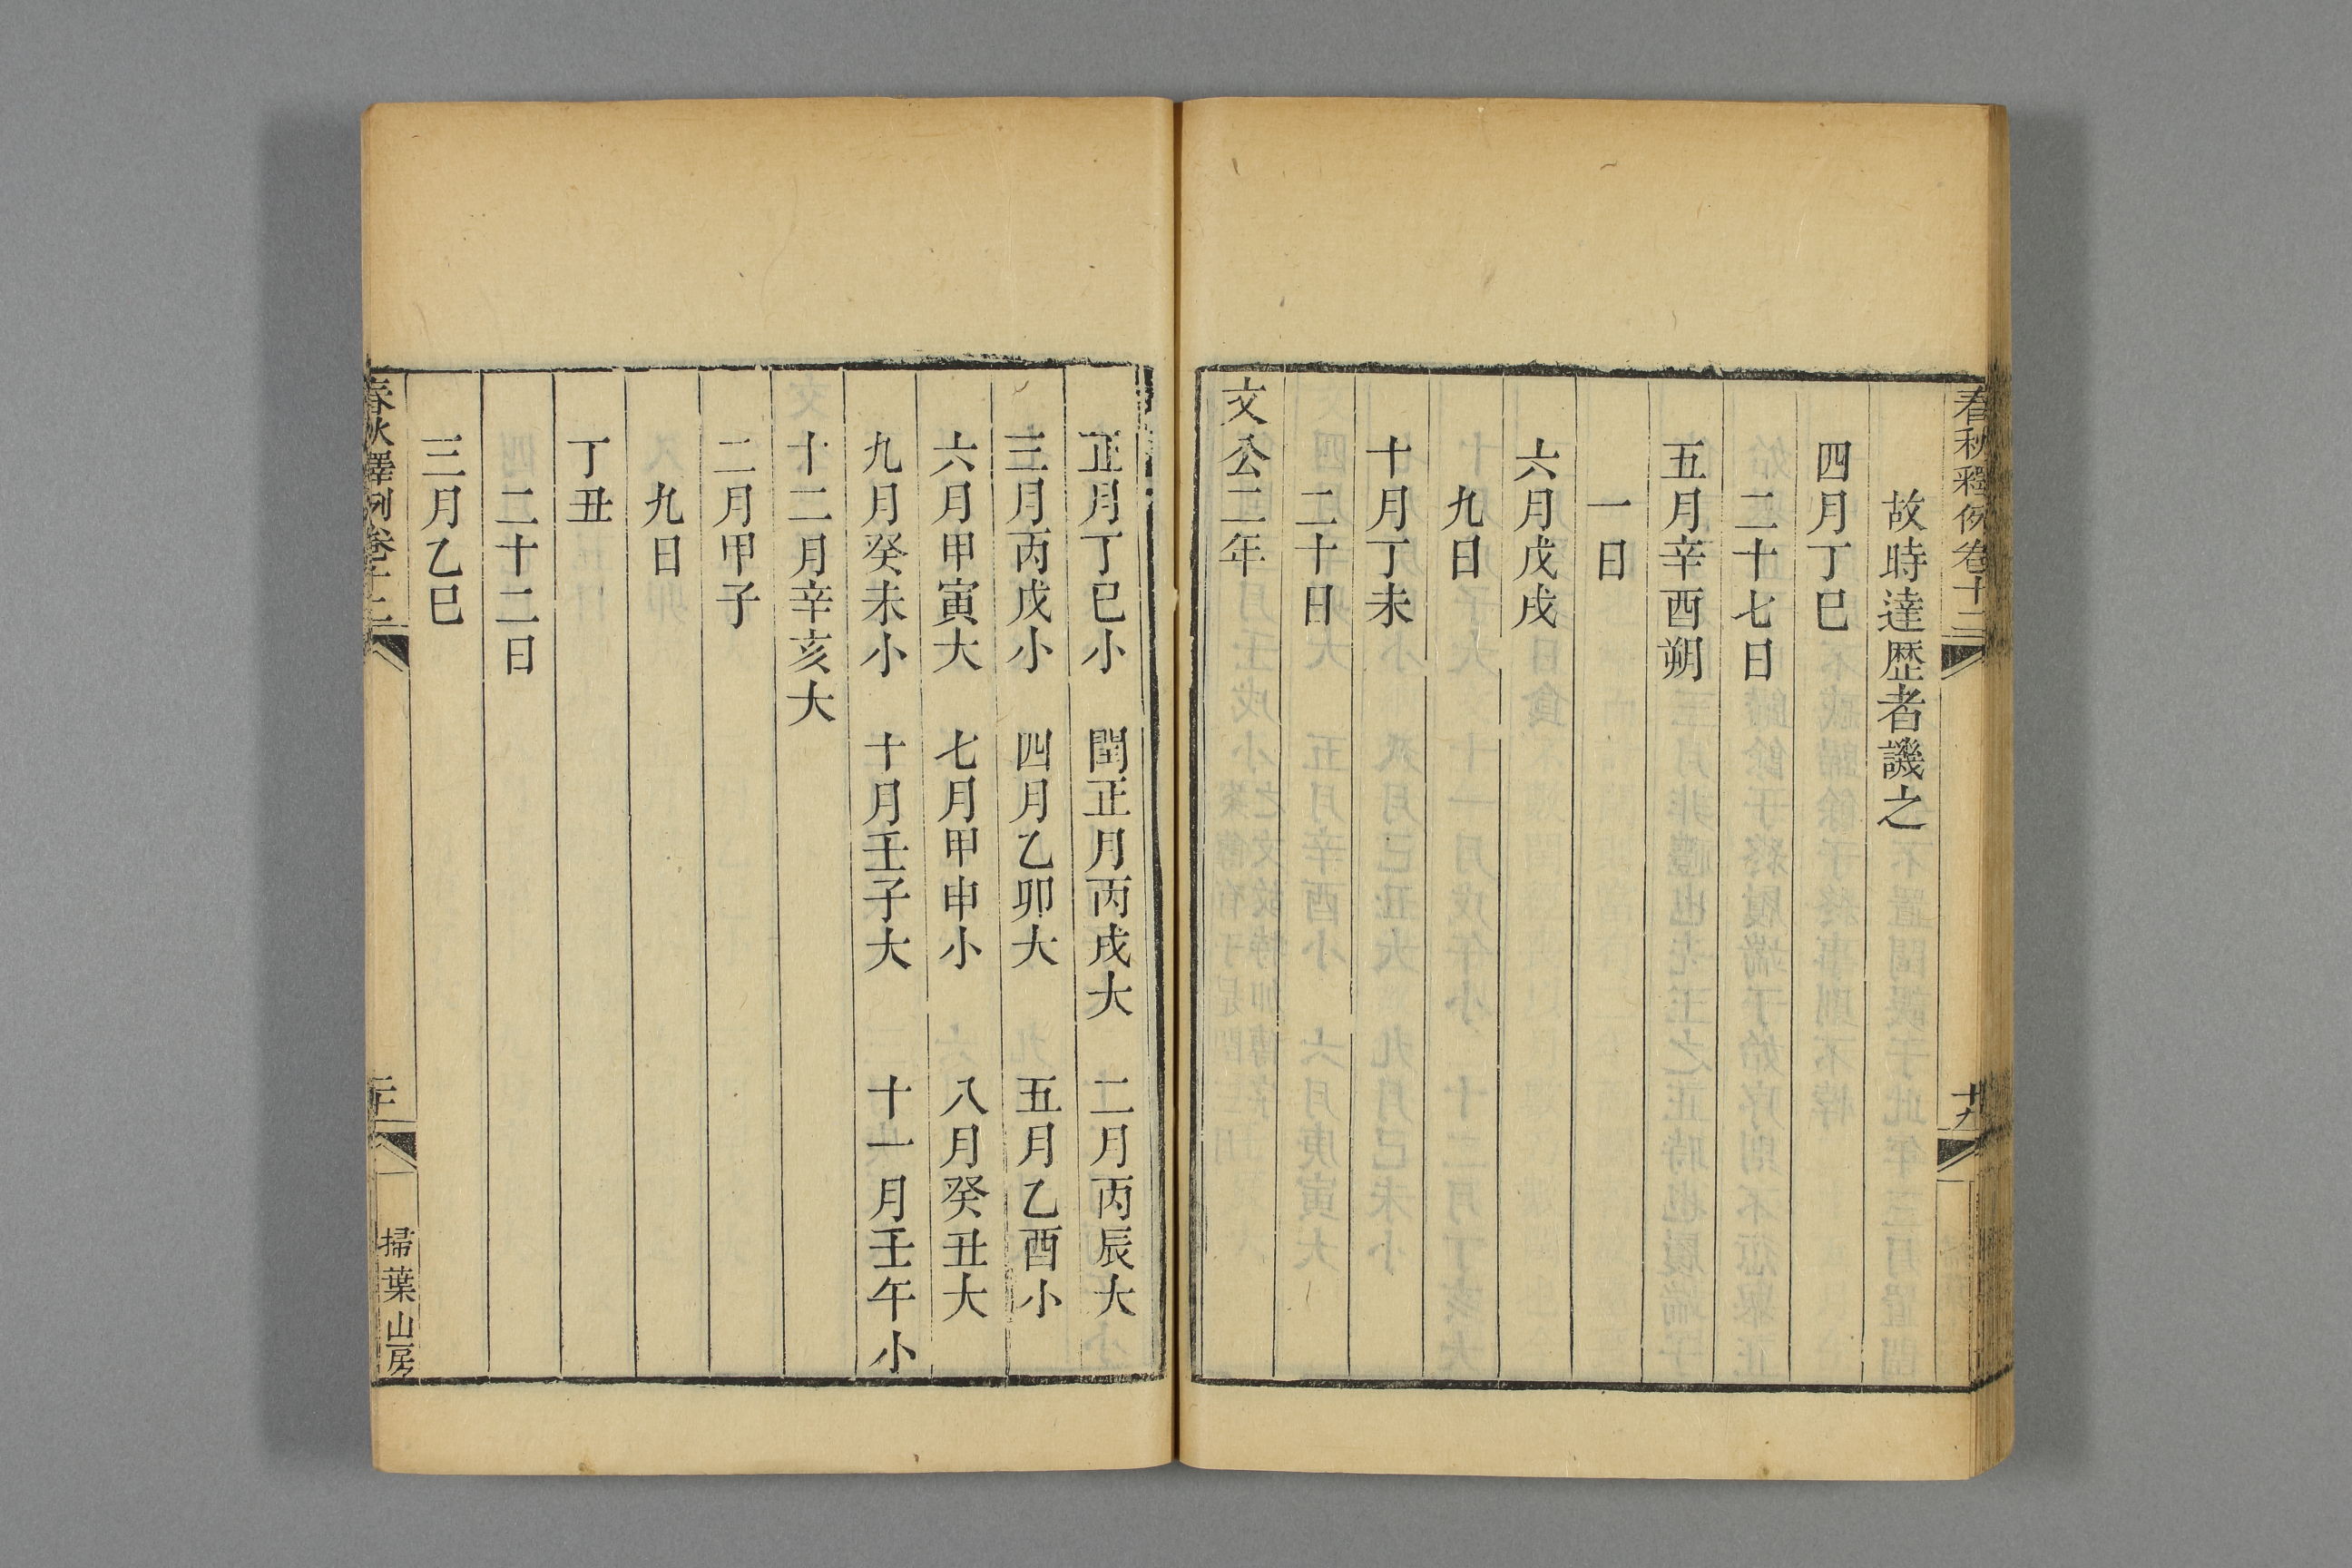 春秋釋例卷十二
十九
故時達歴者譏之
四月丁巳
二十七日
五月辛酉朔
一日
六月戊戌
九日
十月丁未
二十日
文公二年
正月丁巳小 閏正月丙戌大 二月丙辰大
三月丙戌小 四月乙卯大 五月乙酉小
六月甲寅大 七月甲申小 八月癸丑大
九月癸未小 十月壬子大 十一月壬午小
十二月辛亥大
二月甲子
九日
丁丑
二十二日
三月乙巳
春秋釋例卷十二
掃葉山房